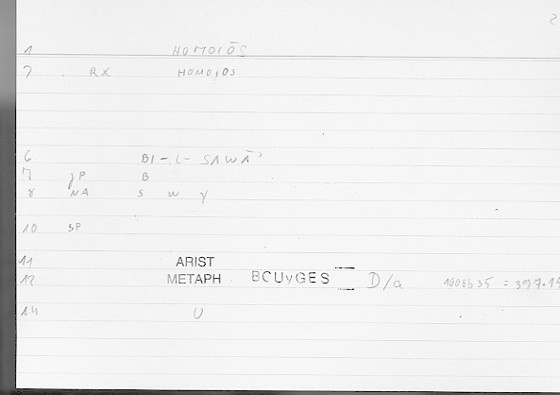 1 HOMOIŌS
2 RX HOMOIOS
6 BI-L-SAWĀʾ
7 JP B
8 NA S W Y
10 SP
11 ARIST
12 METAPH BCUvGES D/a 1008b35 = 397.15
14 U